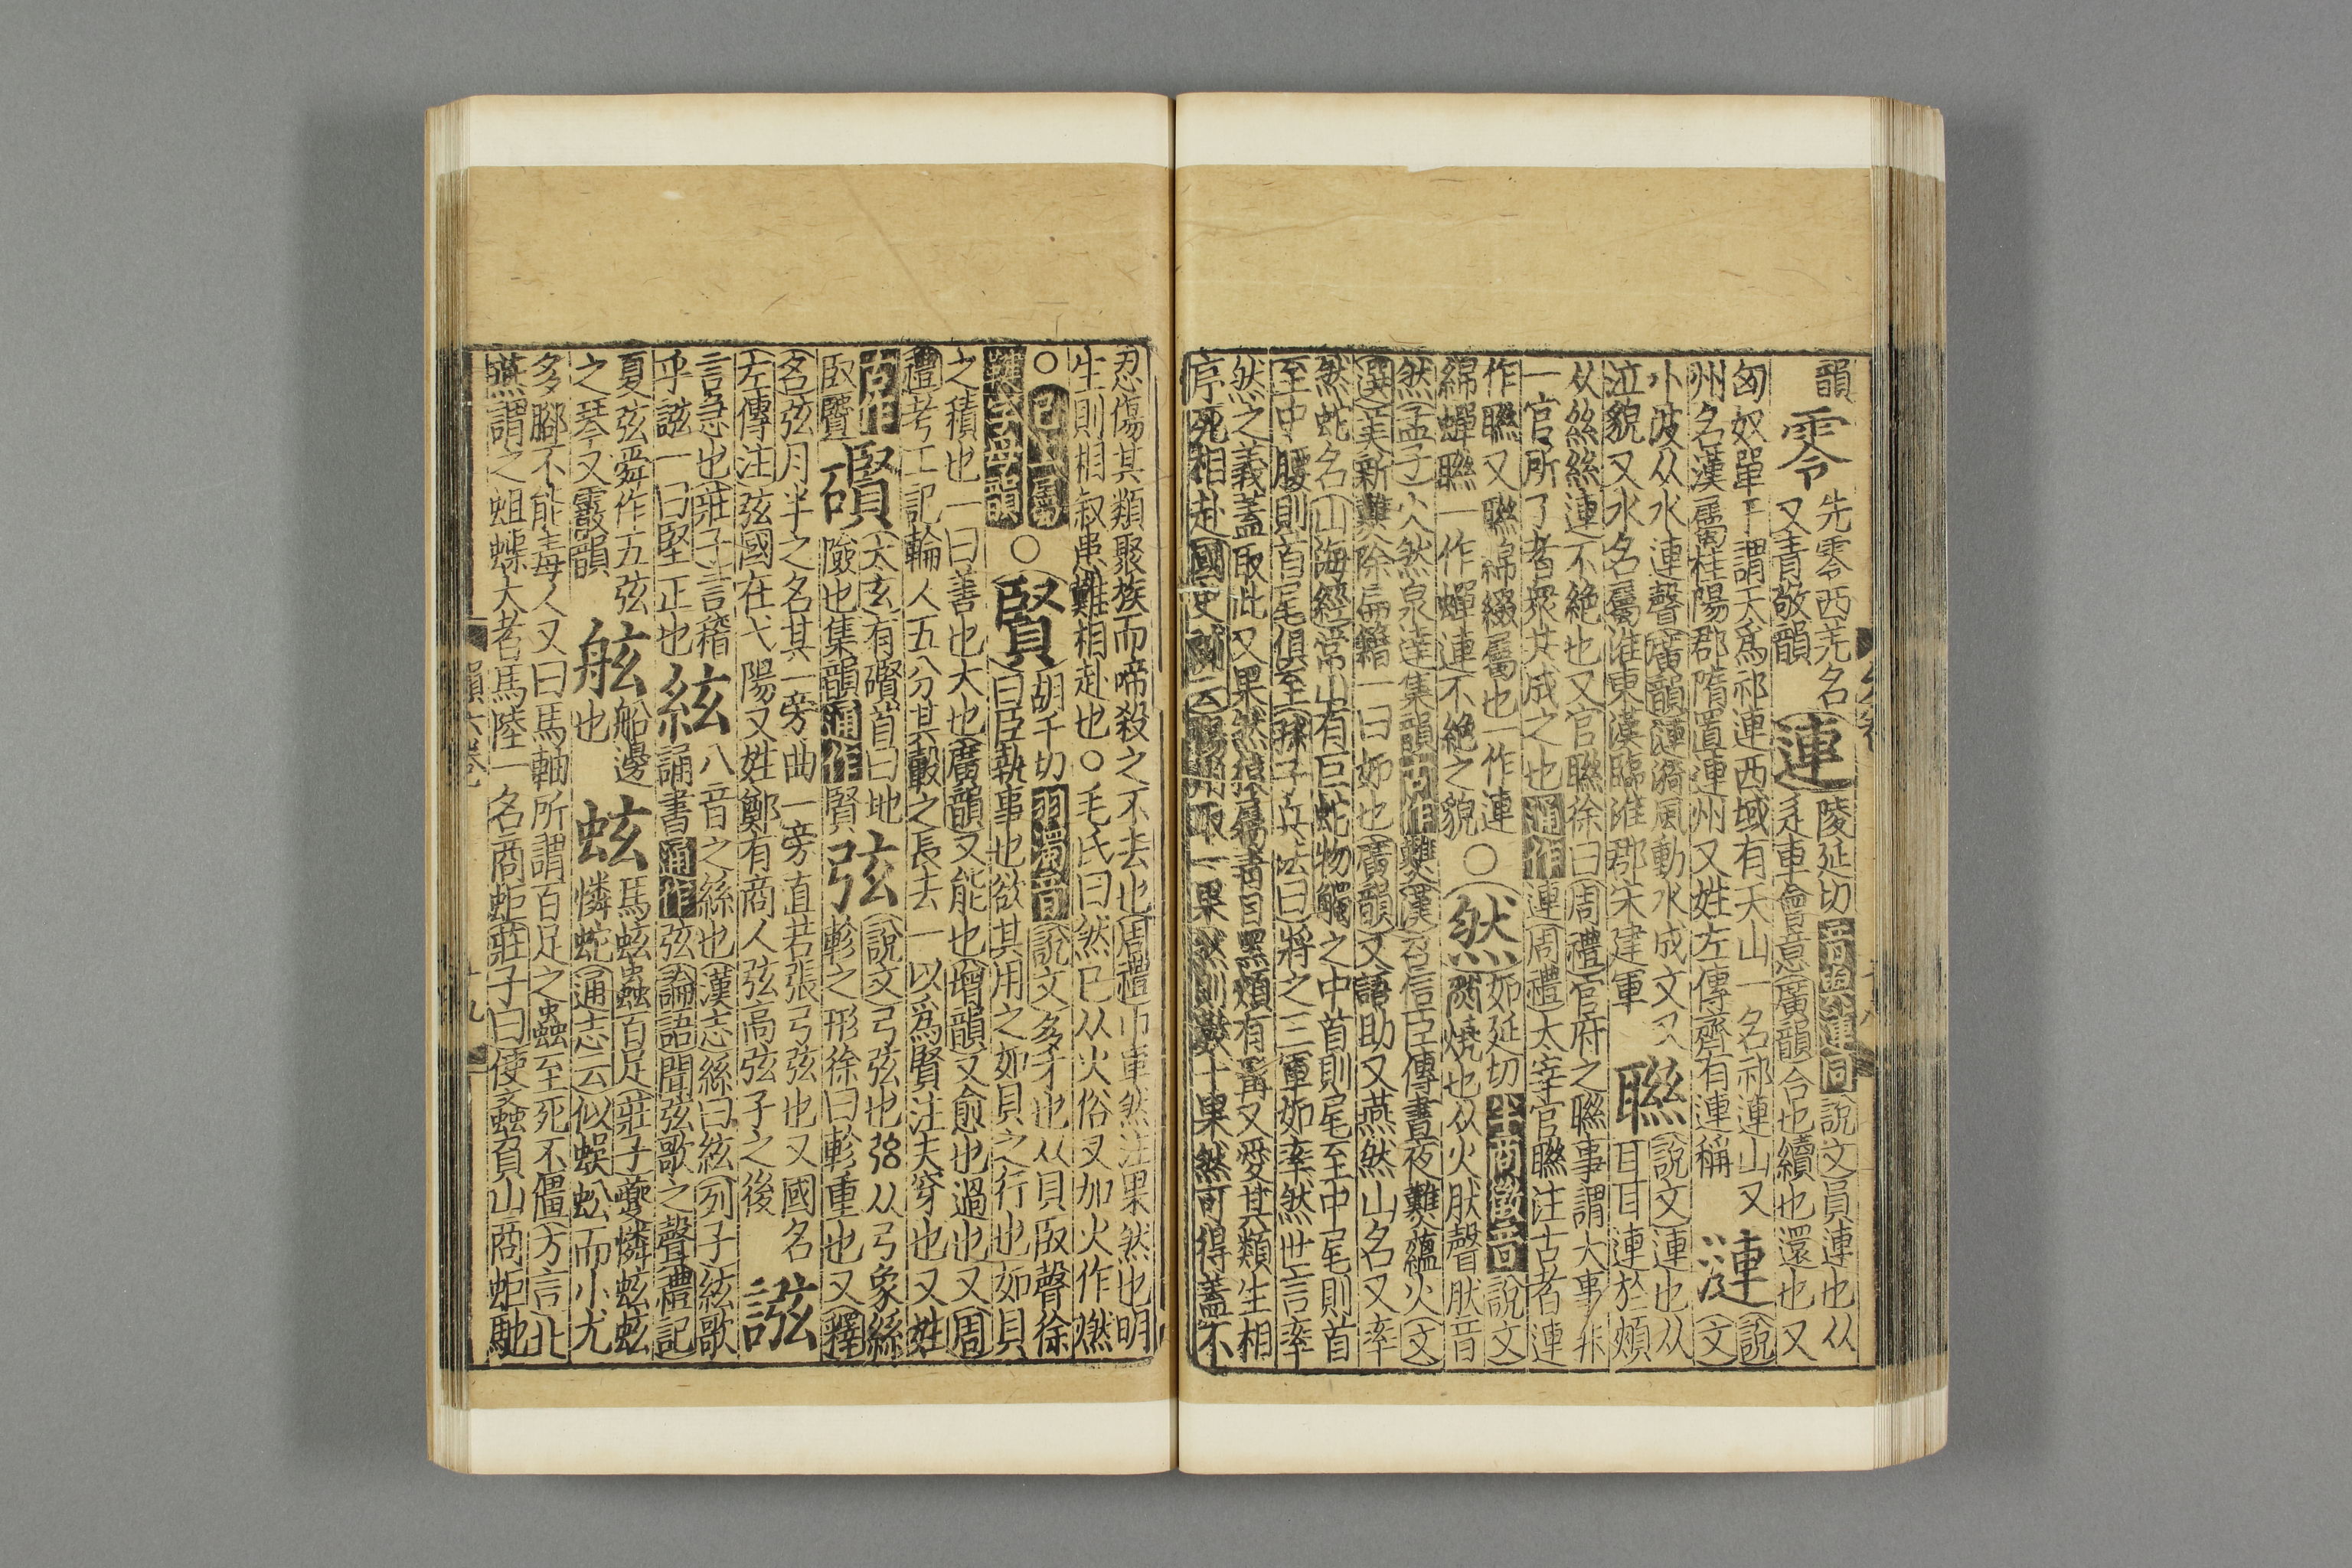 韻
零
先零西羌名
又青敬韻
連
陵延切音與連同說文員連也从
辵車會意廣韻合也續也還也又
匈奴單于謂天爲祁連西域有天山一名祁連山又
州名漢屬桂陽郡隋置連州又姓左傳齊有連稱
漣
說
文
小波从水連聲廣韻漣漪風動水成文又
泣貌又水名屬淮東漢臨淮郡宋建軍
聯
說文連也从
耳耳連於頰
从絲絲連不絶也又官聯徐曰周禮官府之聯事謂大事非
一官所了者衆共成之也通作連周禮太宰官聯注古者連
作聯又聯綿綴屬也一作連
綿蟬聯一作蟬連不絶之貌
○
然
如延切半商徵音說文
燒也从火肰聲肰音
然孟子火然泉達集韻古作䕼漢召信臣傳晝夜䕼蘊火文
選美新䕼除扁籍一曰如也廣韻又語助又燕然山名又率
然蛇名山海經常山有巨蛇物觸之中首則尾至中尾則首
至中腰則首尾俱至孫子兵法曰將之三軍如率然世言率
然之義蓋取此又果然猿屬青目黑頰有髯又愛其類生相
序死相赴國史補云楊州取一果然則數十果然可得蓋不
忍傷其類聚族而啼殺之不去也周禮巾車然注果然也明
生則相叙患難相赴也○毛氏曰然已从火俗又加火作燃
○已上屬
韃字母韻
○
賢
胡千切羽濁音說文多才也从貝臤聲徐
曰臣執事也欲其用之如貝之行也如貝
之積也一曰善也大也廣韻又能也增韻又愈也過也又周
禮考工記輪人五分其轂之長去一以爲賢注夫穿也又姓
古作
臤贒
礥
太玄有礥首曰地
險也集韻通作賢
弦
說文弓弦也弦从弓象絲
軫之形徐曰軫重也又釋
名弦月半之名其一旁曲一旁直若張弓弦也又國名
左傳注弦國在弋陽又姓鄭有商人弦高弦子之後
誸
言急也莊子言稽
乎誸一曰堅正也
絃
八音之絲也漢志絲曰絃列子絃歌
誦書通作弦論語聞弦歌之聲禮記
夏弦舜作五弦
之琴又霰韻
舷
船邊
也
蚿
馬蚿蟲百足莊子夔憐蚿蚿
憐蛇通志云似蜈蚣而小尤
多腳不能毒人又曰馬軸所謂百足之蟲至死不僵方言北
燕謂之蛆蟝大者馬陸一名商蚷莊子曰使蚉負山商蚷馳
韻六卷
十九